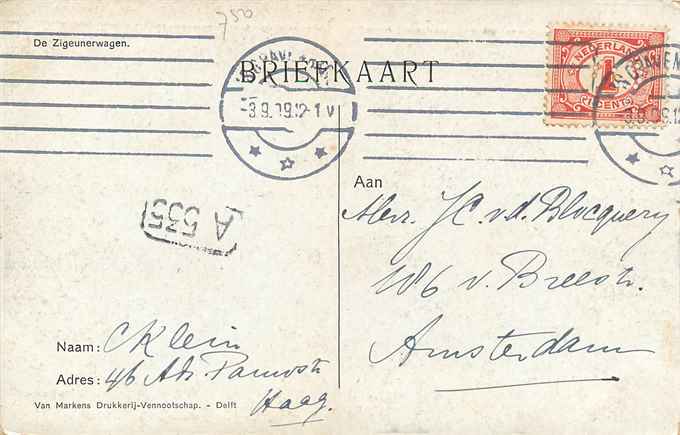 750
De Zigeunerwagen.
BRIEFKAART
NEDERLAND
1
CENT
'S GRAVENHAGE
-3.9.09.12-1 V
A 535
Aan
Herr. J.C. v.d. Blocquery
186 v. Breestr.
Amsterdam
Naam: C Klein
Adres: 46 Adr. Pauwstr
Haag.
Van Markens Drukkerij-Vennootschap. - Delft